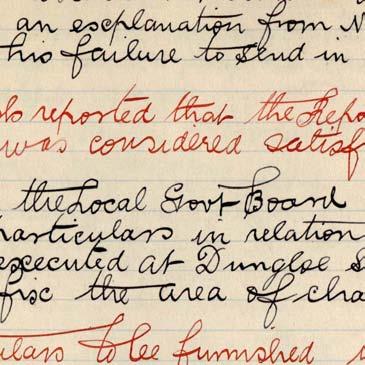 an esceplanation from
his failure to send in
reported that the Repo
was considered satisf
the Local Govt Board
particulars in relation
executed at Dungloe S
fix the area of cha
ulars to be furnished